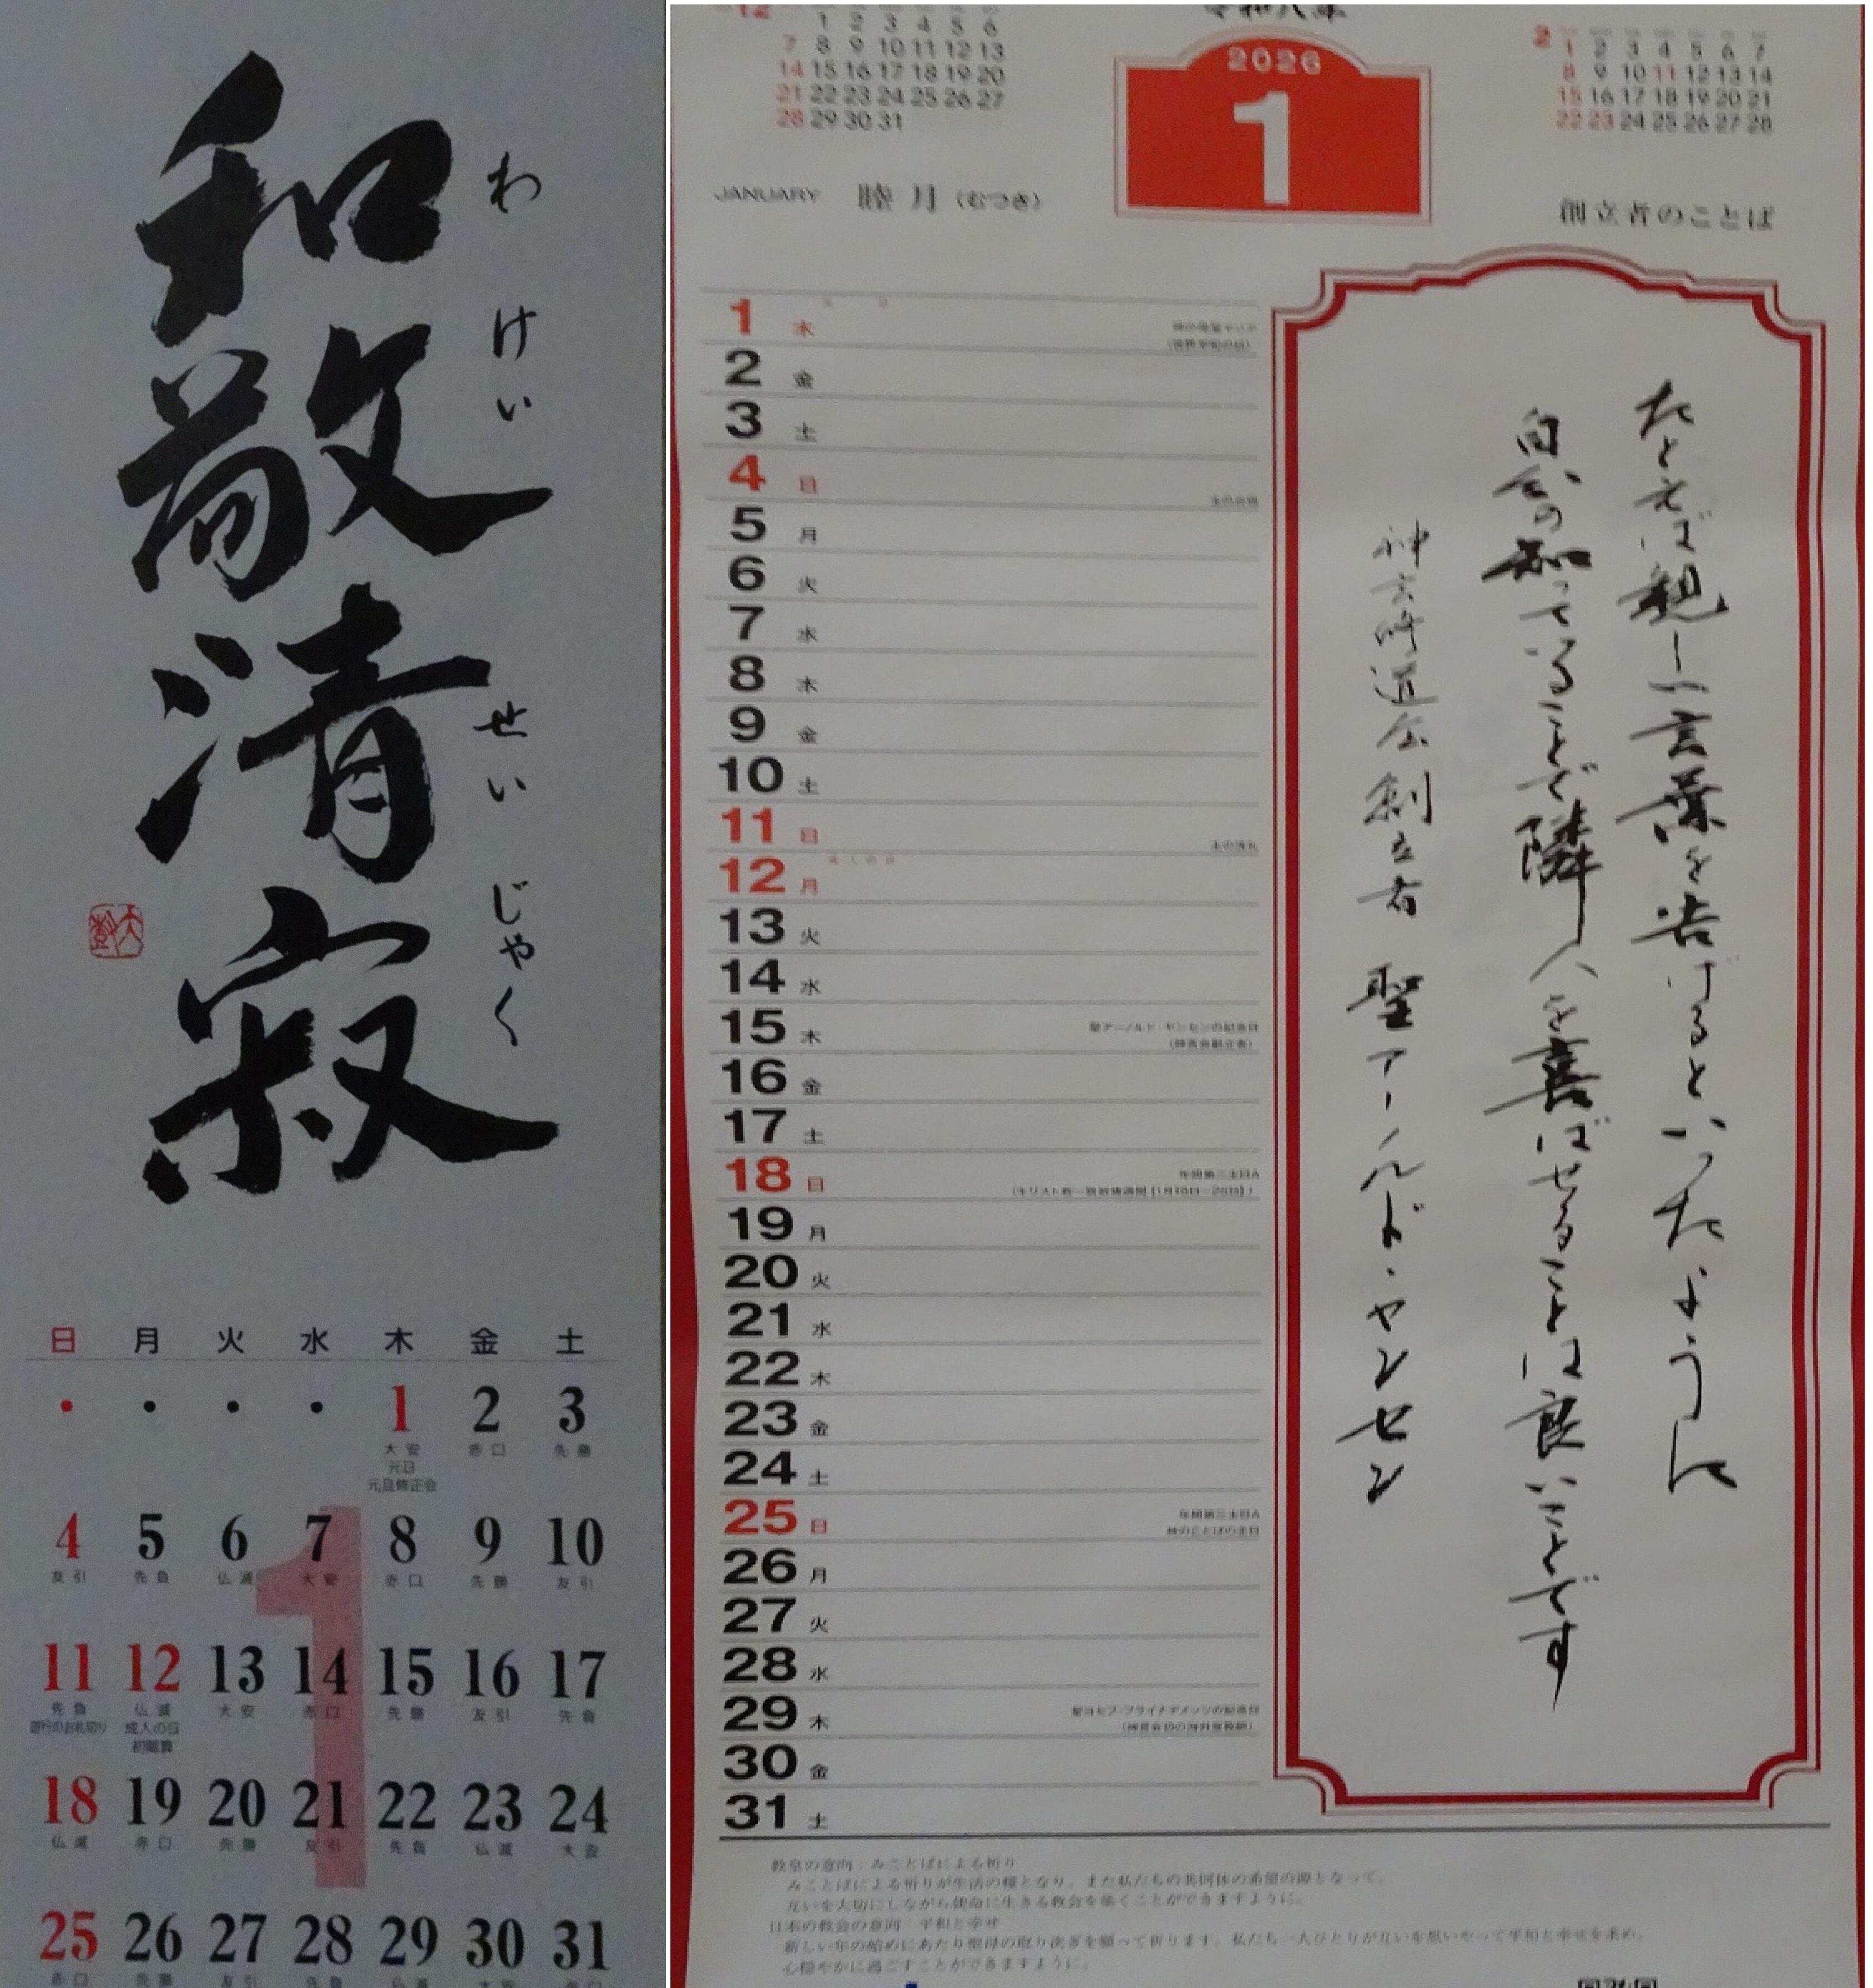 和敬清寂
わけいせいじゃく
日 月 火 水 木 金 土
・ ・ ・ ・ 1 2 3
大安 赤口 先勝
元日
元旦修正会
4 5 6 7 8 9 10
友引 先負 仏滅 大安 赤口 先勝 友引
11 12 13 14 15 16 17
先負 仏滅 大安 赤口 先勝 友引 先負
成人の日
18 19 20 21 22 23 24
仏滅 赤口 先勝 友引 先負 仏滅 大安
25 26 27 28 29 30 31
赤口 先勝 友引 先負 仏滅 大安 赤口
1
12
1 2 3 4 5 6
7 8 9 10 11 12 13
14 15 16 17 18 19 20
21 22 23 24 25 26 27
28 29 30 31
令和八年
2026
1
2
1 2 3 4 5 6 7
8 9 10 11 12 13 14
15 16 17 18 19 20 21
22 23 24 25 26 27 28
JANUARY 睦月(むつき)
創立者のことば
1 木
(世界平和の日)
2 金
3 土
4 日 主の公現
5 月
6 火
7 水
8 木
9 金
10 土
11 日 主の洗礼
12 月 成人の日
13 火
14 水
15 木 聖アーノルド・ヤンセンの記念日
(神言会創立者)
16 金
17 土
18 日 年間第二主日A
(キリスト教一致祈祷週間【1月18日-25日】)
19 月
20 火
21 水
22 木
23 金
24 土
25 日 年間第三主日A
神のことばの主日
26 月
27 火
28 水
29 木 聖ヨセフ・フライナデメッツの記念日
(神言会初の海外宣教師)
30 金
31 土
たとえば親しい言葉を告げるといったように
自分の知ってることで隣人を喜ばせることは良いことです
神言修道会創立者 聖アーノルド・ヤンセン
教皇の意向:みことばによる祈り
みことばによる祈りが生活の糧となり、また私たちの共同体の希望の源となって、
互いを大切にしながら使命に生きる教会を築くことができますように。
日本の教会の意向:平和と幸せ
新しい年の始めにあたり聖母の取り次ぎを願って祈ります。私たち一人ひとりが互いを思いやって平和と幸せを求め、
心穏やかに過ごすことができますように。